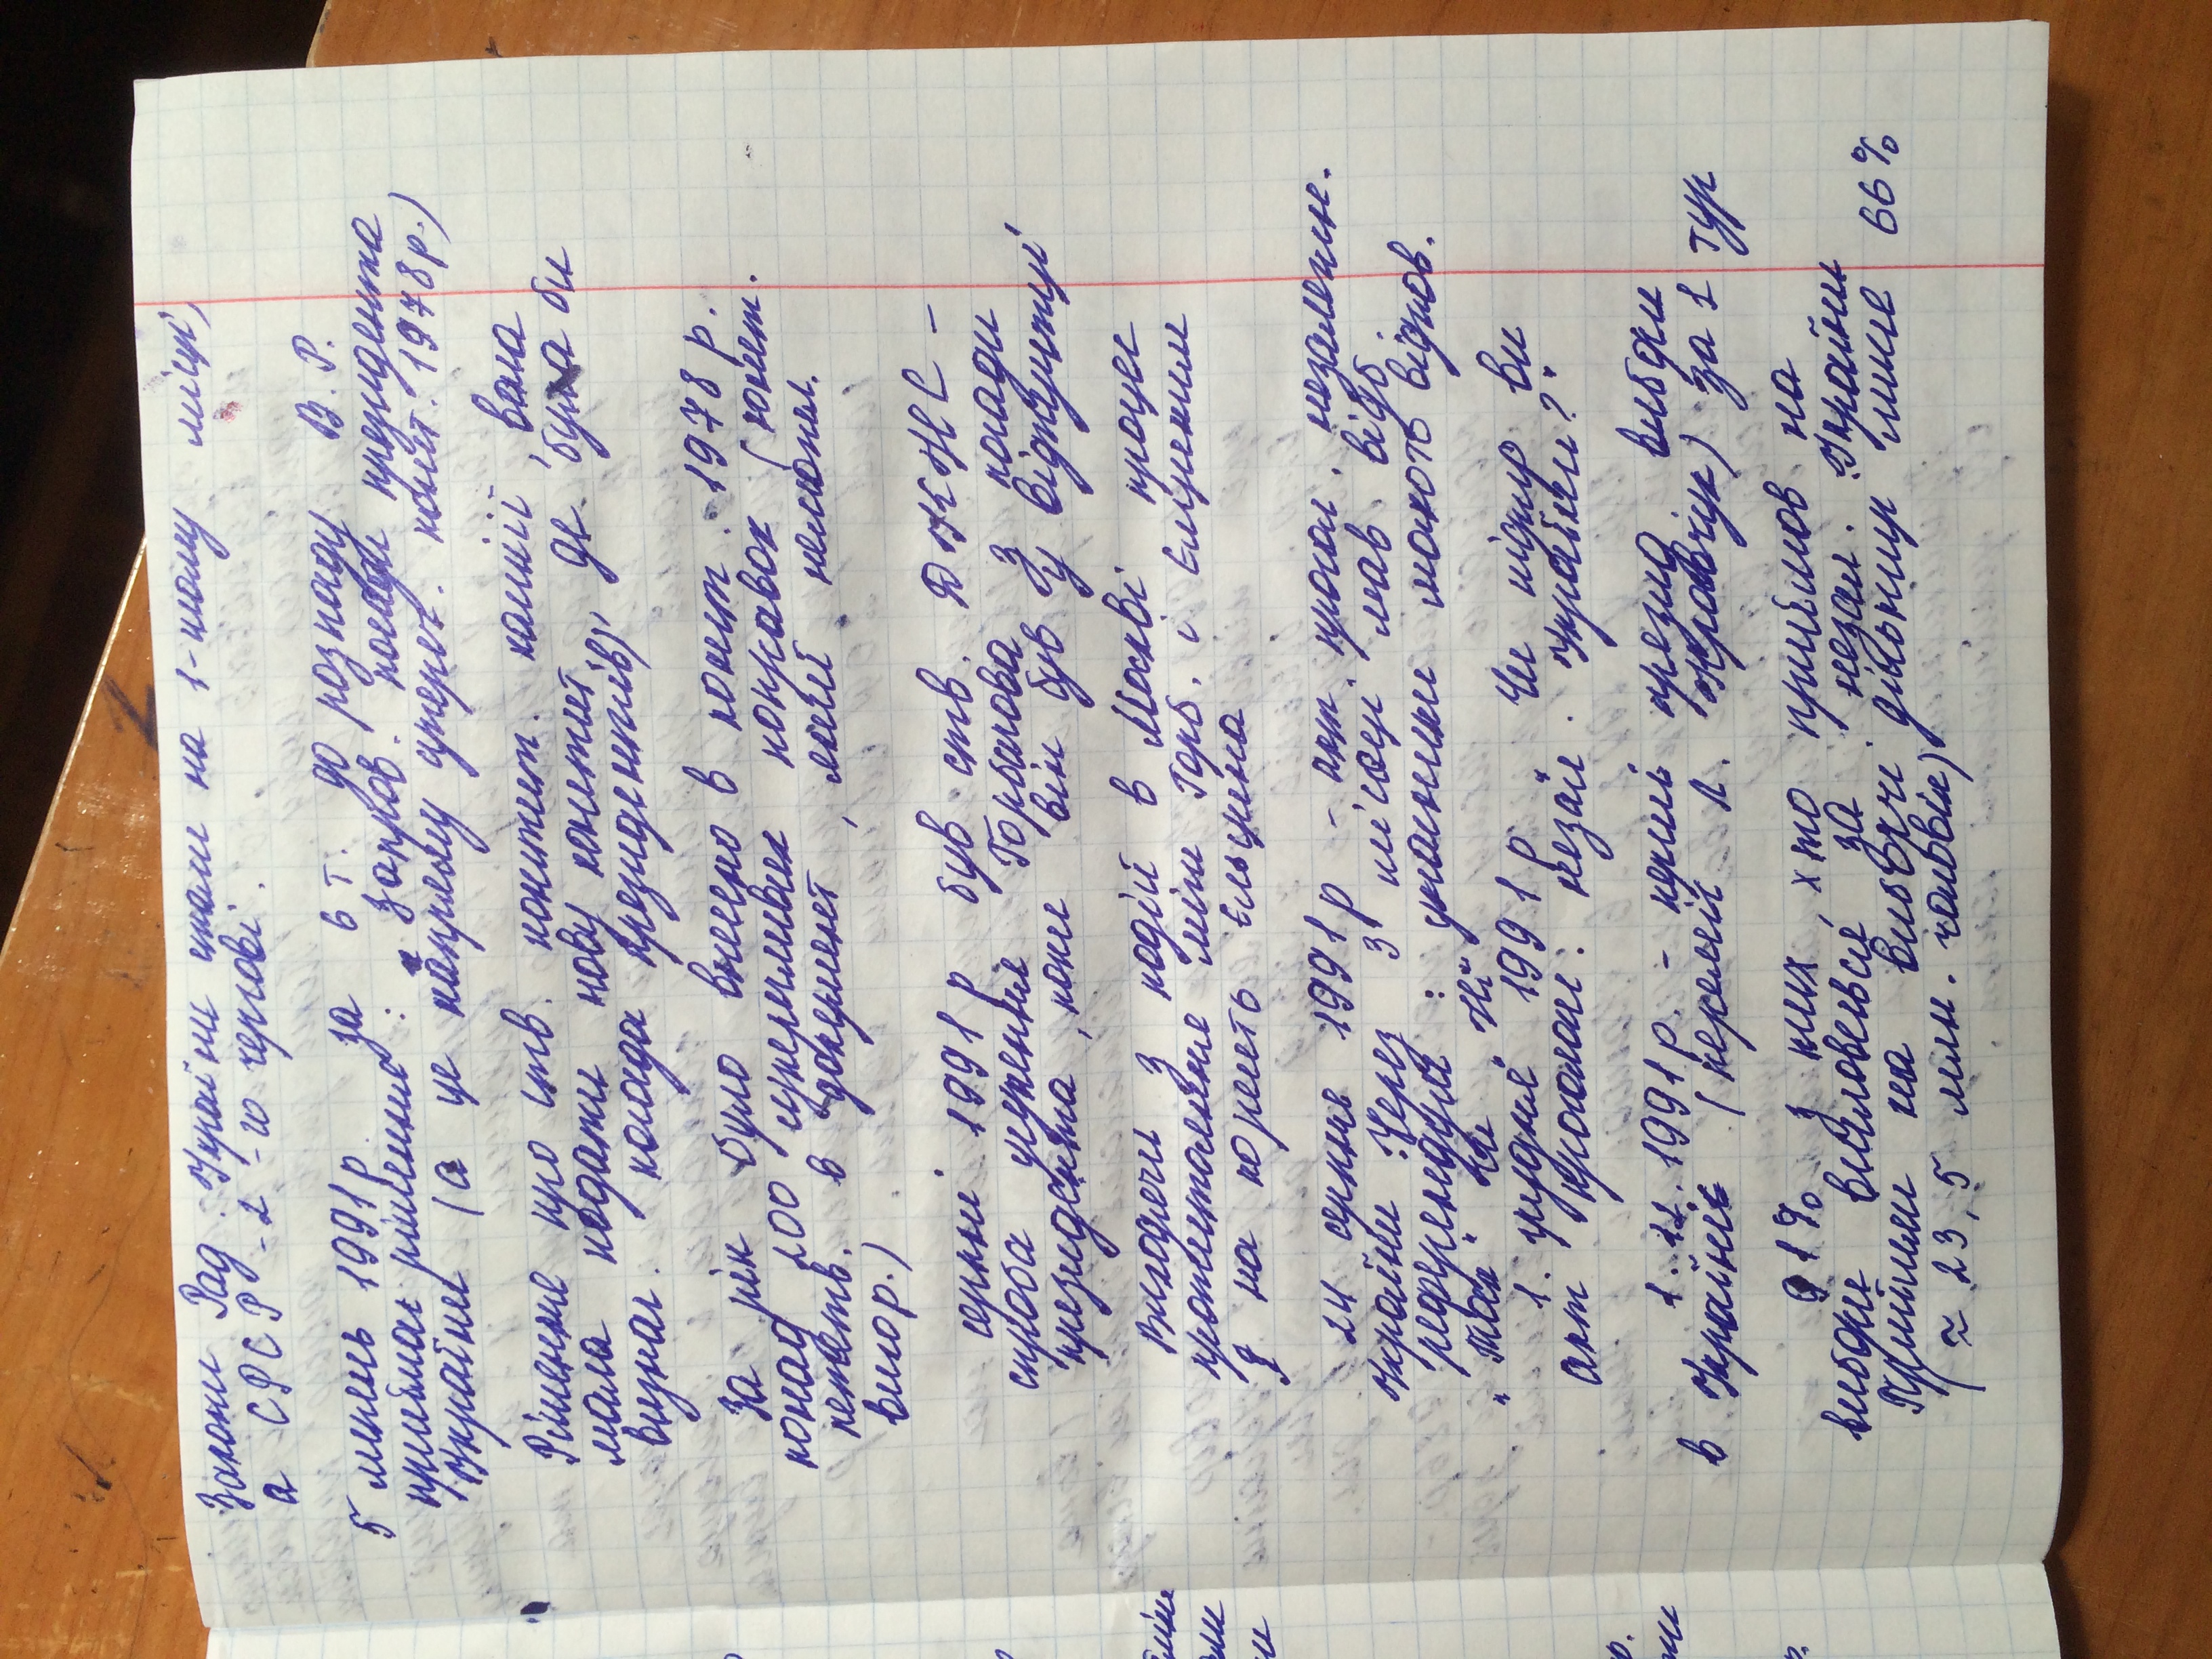 Закони Рад. України стали на 1-шому місці,
а СРСР - 2 -го чергові.
5 липень 1991 р. за 6 т. до розпаду В.Р.
приймає рішення: „Запров. посади президента
України (а це напряму супереч. конст. 1978 р.)
Рішення про ств. констит. комісії, вона
мала подати нову констит., де була би
визнач. посада президентів)
За рік було внесено в конст. 1978 р.
понад 200 суперечливих поправок (конст.
перетв. в документ, який неможл.
викор.)
серпні 1991 р був ств. ДКНС -
спроба усунення Горбачова з посади
президента, поки він був у відпустці
Виходячи з подій в Москві процес
протистояння між Горб. і Єльциним
на користь Єльцина
24 серпня 1991 р - акт прогол. незалежн.
України. Через 3 місяці мав відб.
референдум : учасники мають відпов.
„Так" чи „Ні"
1. грудня 1991 р „Чи підтр ви
акт проголош. незал. України?"
1. 12. 1991 р. - перші презид. вибори
в Україніє (переміг Л. Кравчук) за 1 тур
91% з них, хто прийшов на
вибори висловився за незал. України
Прийшли на виборчі дільниці лише 66%
(≈ 23,5 млн. чоловік)